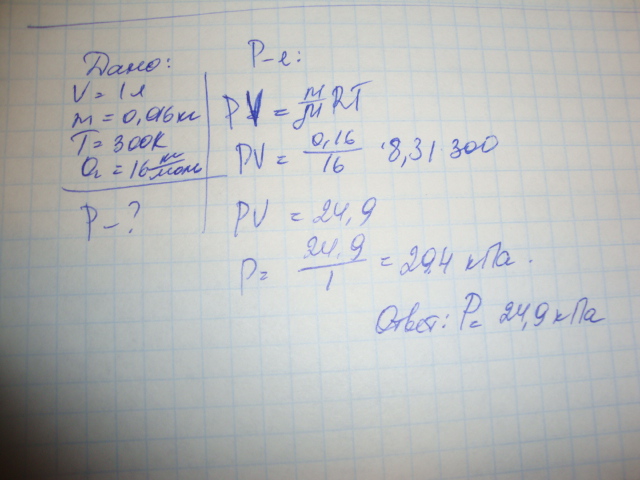 Дано:
V = 1 л
m = 0,016 кг
T = 300К
O₂ = 16 кг/моль
P – ?
Р-е:
PV = m/M RT
PV = 0,16/16 · 8,31 · 300
PV = 24,9
P = 24,9/1 = 29,4 кПа.
Ответ: P = 24,9 кПа